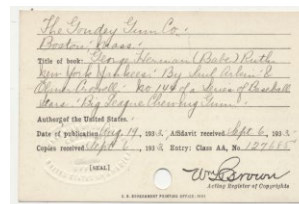 The Goudey Gum Co.
Boston, Mass.
Title of book: George Herman (Babe) Ruth
New York Yankees. By Paul
Oliver No. 144 of a Series of Baseball
Stars. Big League Chewing Gum.
Author, of the United States.
Date of publication Aug. 19, 1933. Affidavit received Sept. 6, 1933.
Copies received Sept. 6, 1933. Entry: Class AA, No. 127685
[SEAL]
Wm L Brown
Acting Register of Copyrights
U. S. GOVERNMENT PRINTING OFFICE